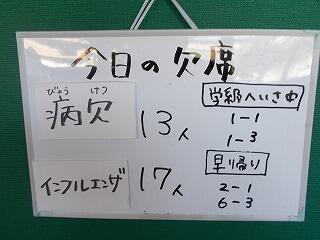 今日の欠席
びょう けつ
病欠 13人
インフルエンザ 17人
学級へいさ中
1-1
1-3
早帰り
2-1
6-3